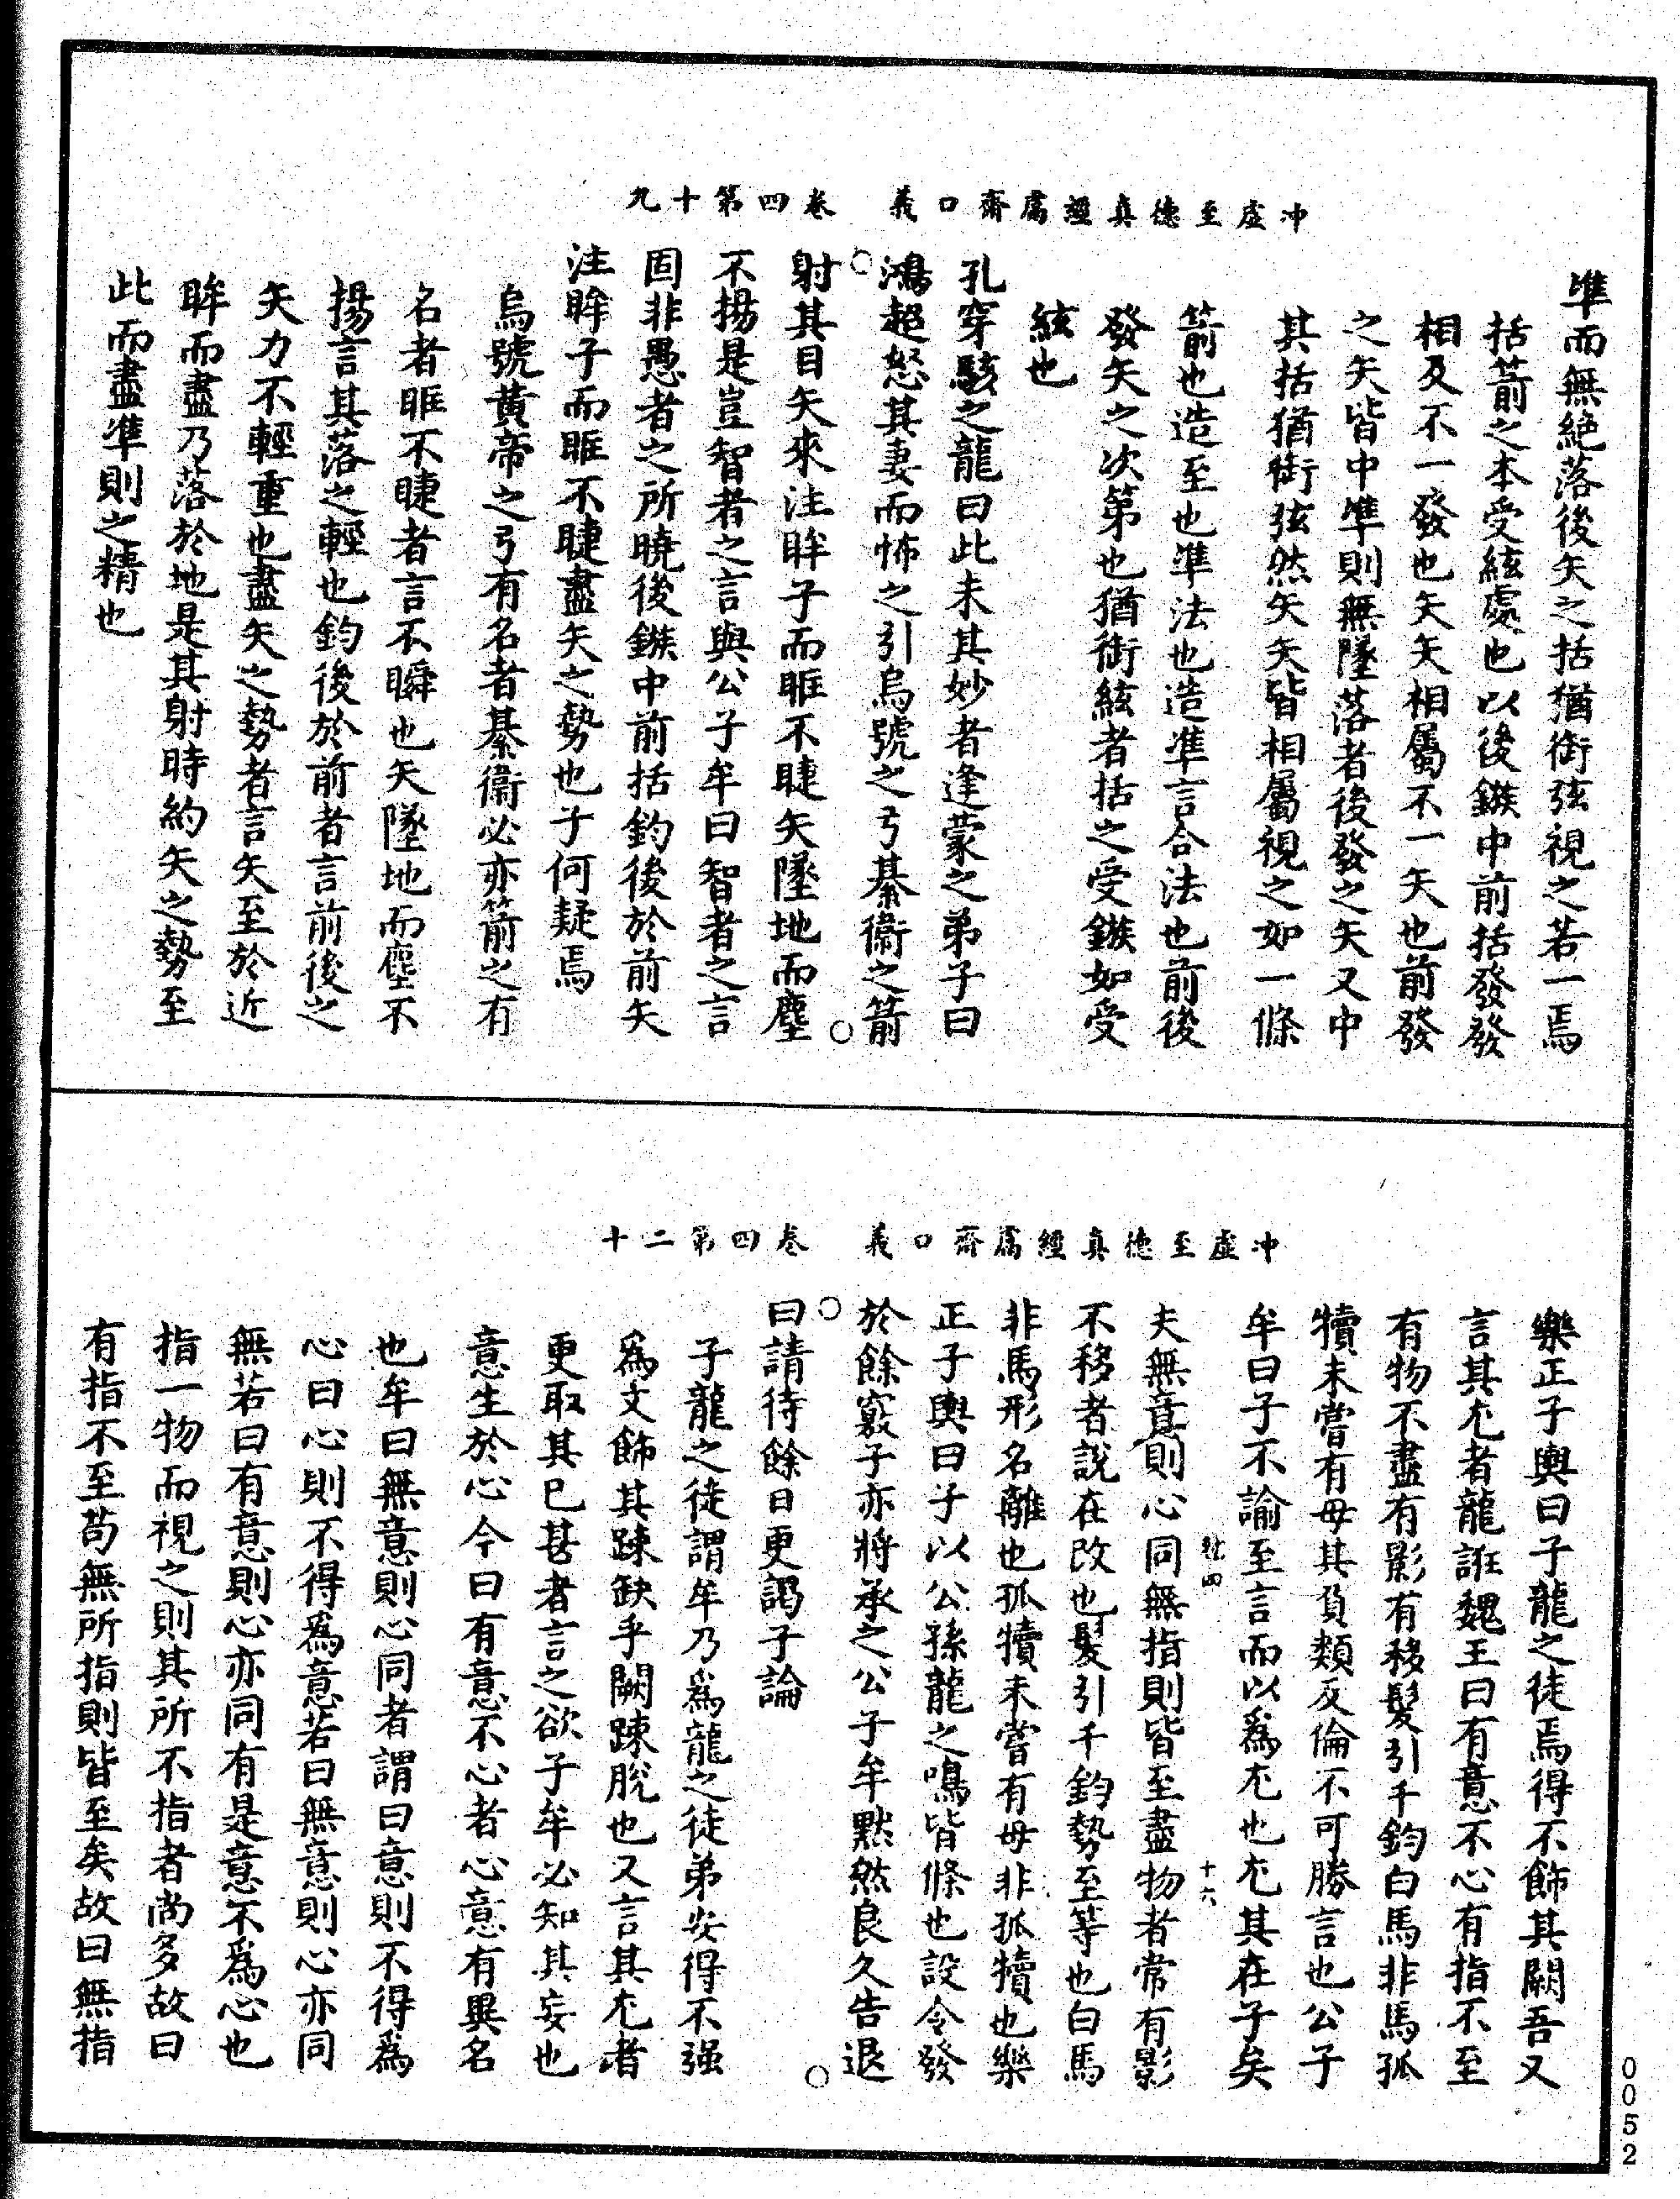 冲虛至德真經鬳齋口義　卷四第十九
準而無絕落後矢之括猶銜弦視之若一焉
括箭之本受絃處也以後鏃中前括發發
相及不一發也矢矢相屬不一矢也前發
之矢皆中準則無墜落者後發之矢又中
其括猶銜弦然矢矢皆相屬視之如一條
箭也造至也準法也造準言合法也前後
發矢之次第也猶銜絃者括之受鏃如受
絃也
孔穿駭之龍曰此未其妙者逢蒙之弟子曰
鴻超怒其妻而怖之引烏號之弓綦衞之箭
射其目矢來注眸子而眶不睫矢墜地而塵
不揚是豈智者之言與公子牟曰智者之言
固非愚者之所曉後鏃中前括鈞後於前矢
注眸子而眶不睫盡矢之勢也子何疑焉
烏號黃帝之弓有名者綦衞必亦箭之有
名者眶不睫者言不瞬也矢墜地而塵不
揚言其落之輕也鈞後於前者言前後之
矢力不輕重也盡矢之勢者言矢至於近
眸而盡乃落於地是其射時約矢之勢至
此而盡準則之精也
冲虛至德真經鬳齋口義　卷四第二十
樂正子輿曰子龍之徒焉得不飾其闕吾又
言其尤者龍誑魏王曰有意不心有指不至
有物不盡有影有移髮引千鈞白馬非馬孤
犢未嘗有母其負類反倫不可勝言也公子
牟曰子不諭至言而以爲尤也尤其在子矣
夫無意則心同無指則皆至盡物者常有影
不移者說在改也髮引千鈞勢至等也白馬
非馬形名離也孤犢未嘗有母非孤犢也樂
正子輿曰子以公孫龍之鳴皆條也設令發
於餘竅子亦將承之公子牟默然良久告退
曰請待餘日更謁子論
子龍之徒謂牟乃爲龍之徒弟安得不强
爲文飾其踈缺乎闕踈脫也又言其尤者
更取其已甚者言之欲子牟必知其妄也
意生於心今曰有意不心者心意有異名
也牟曰無意則心同者謂曰意則不得爲
心曰心則不得爲意若曰無意則心亦同
無若曰有意則心亦同有是意不爲心也
指一物而視之則其所不指者尚多故曰
有指不至苟無所指則皆至矣故曰無指
四
十六
0052